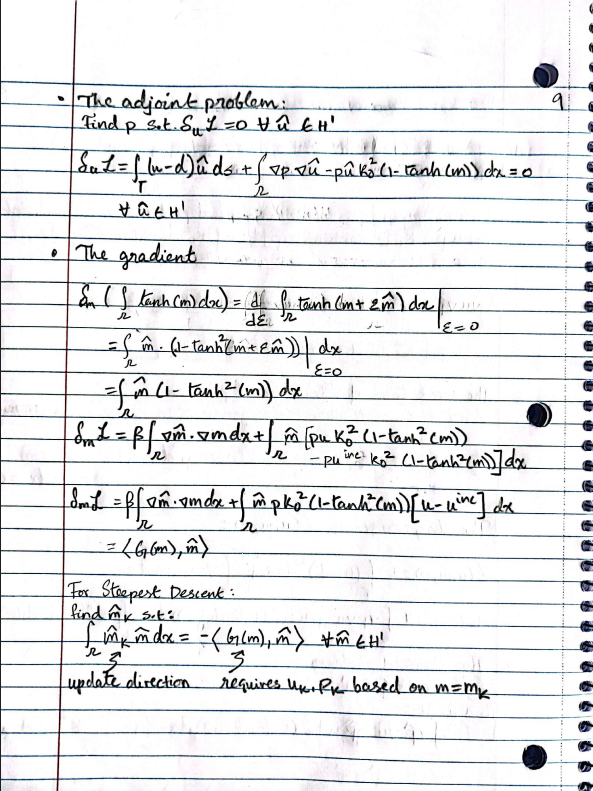 9
• The adjoint problem:
Find p s.t. δ_u ℒ = 0 ∀ û ∈ H'
δ_u ℒ = ∫_Γ (u-d) û ds + ∫_Ω ∇p.∇û - pû k₀² (1- tanh(m)) dx = 0
∀ û ∈ H'
• The gradient
δ_m ( ∫_Ω tanh(m) dx) = d/dε ∫_Ω tanh(m + εm̂) dx |_{ε=0}
= ∫_Ω m̂ . (1-tanh²(m+εm̂)) | dx _{ε=0}
= ∫_Ω m̂ (1- tanh²(m)) dx
δ_m ℒ = β ∫_Ω ∇m̂ . ∇m dx + ∫_Ω m̂ [pu k₀² (1-tanh²(m))
- pu^{inc} k₀² (1-tanh²(m))] dx
δ_m ℒ = β ∫_Ω ∇m̂ . ∇m dx + ∫_Ω m̂ p k₀² (1-tanh²(m)) [u - u^{inc}] dx
= ⟨G(m), m̂⟩
For Steepest Descent:
find m̂_k s.t:
∫_Ω m̂_k m̃ dx = -⟨G(m), m̃⟩ ∀ m̃ ∈ H'
update direction requires u_k, p_k based on m = m_k